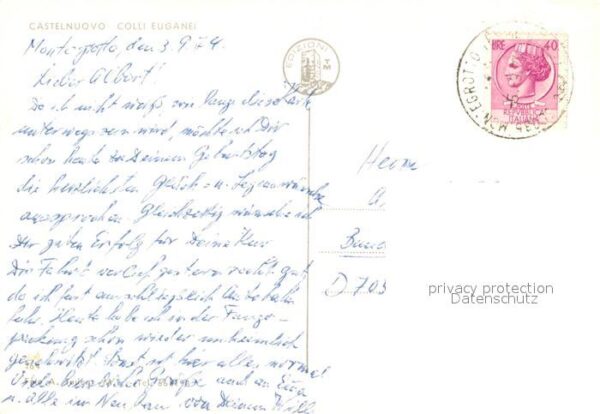 CASTELNUOVO COLLI EUGANEI
Montegrotto, den 3.9.74
Lieber Albert!
Da ich nicht weiß, wie lange diese Karte
unterwegs sein wird, möchte ich Dir
schon heute zu Deinem Geburtstag
die herzlichsten Glück- u. Segenswünsche
aussprechen. Gleichzeitig wünsche ich
Dir guten Erfolg für Deine Kur
Die Fahrt verlief gestern recht gut,
da ich fast ausschließlich Autobahn
fuhr. Heute habe ich in der Fango-
packung schon wieder unheimlich
geschwitzt. Sonst ist hier alles normal
Viele herzliche Grüße auch an Eugen
u. alle im Neubau von Deinem Willi
EDIZIONI
TM
LIRE 40
ITALIANA
Herrn
A.
D 703
privacy protection
Datenschutz